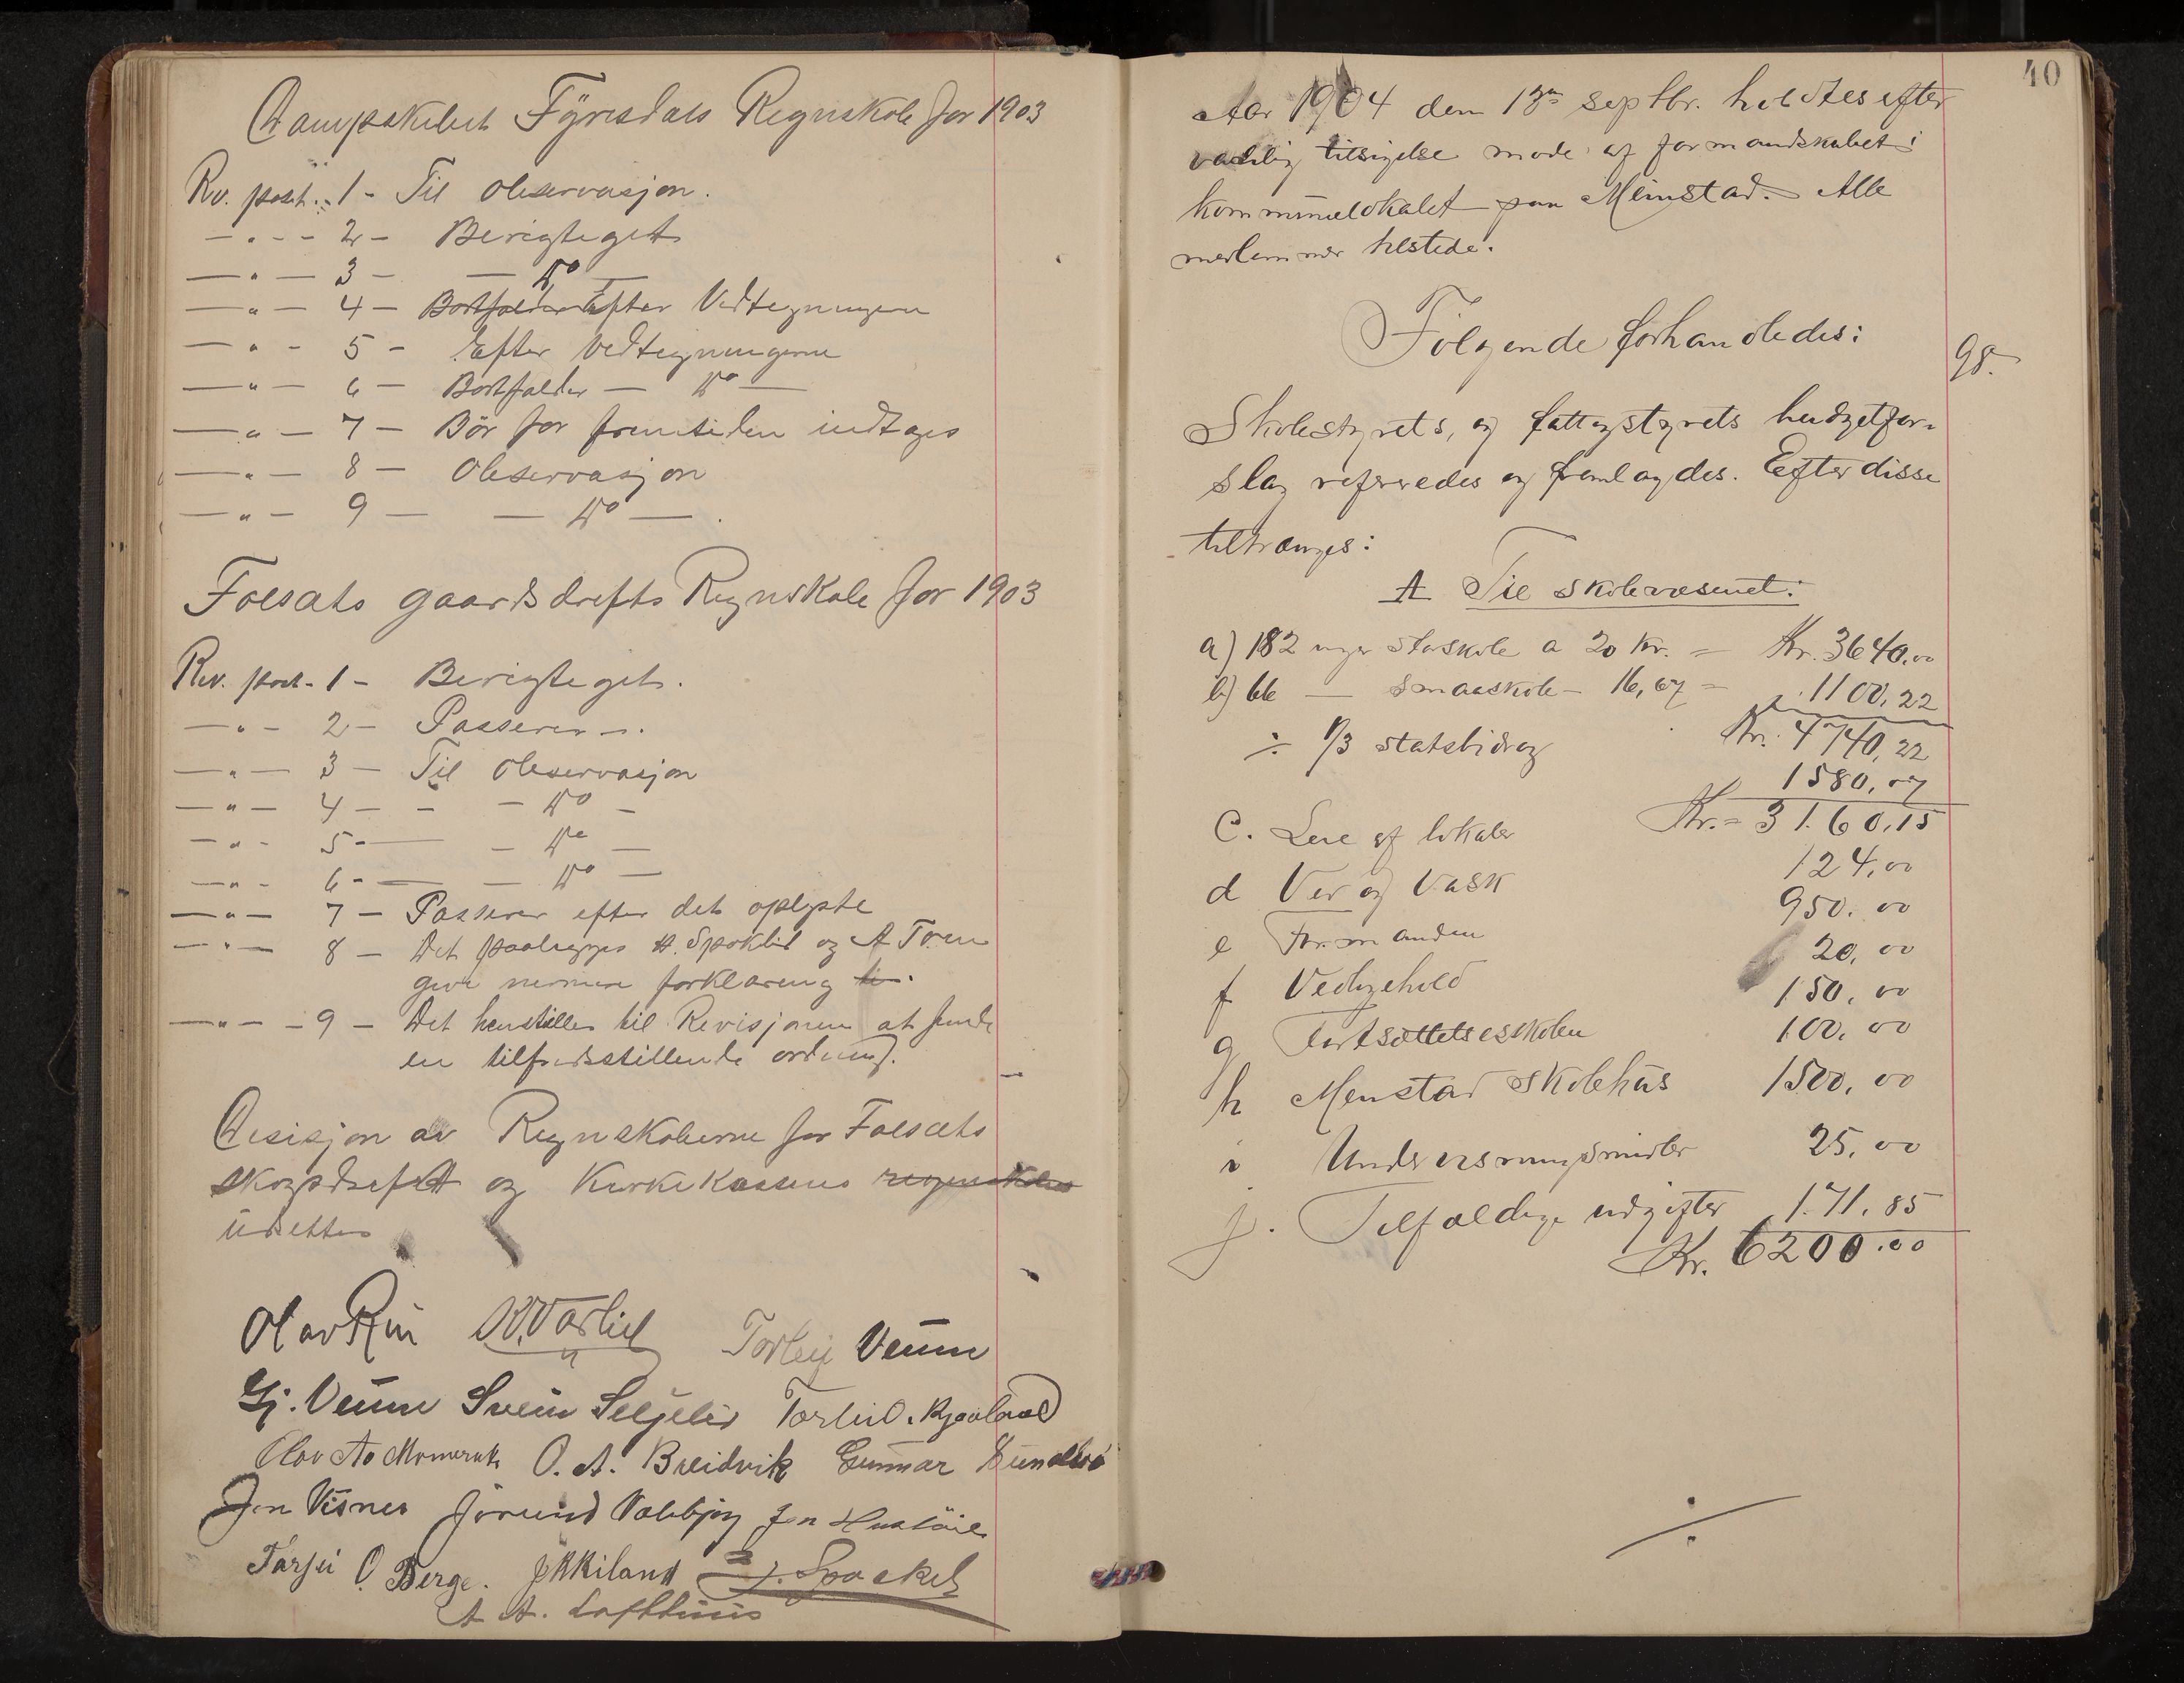 Dampskibet Fyresdals Regnskab for 1903
Rv. post. 1 - Til Observasjon.
— " — 2 - Berigtiget
— " — 3 - — Do —
— " — 4 - Bortfalder Efter Vedtegningen
— " — 5 - Efter Vedtegningerne
— " — 6 - Bortfalder — Do —
— " — 7 - Bör for fremtiden indtages
— " — 8 - Observasjon
— " — 9 - — Do —
Folsats gaardsdrefts Regnskab for 1903
Rev. post - 1 - Berigtiget.
— " — 2 - Passerer —.
— " — 3 - Til Observasjon
— " — 4 - - — Do —
— " — 5 - — Do —
— " — 6 - — Do —
— " — 7 - Passerer efter det oplyste
— " — 8 - Det paalegges H. Spokkeli og A Toen
give nermere forklaring
— " — 9 - Det henstilles til Revisjonen at finde
en tilfredsstillende ordning.
Desisjon av Regnskaberne for Folsats
skogsdreft og Kirkekassens regnskaber
udsettes
Olav Rui K. Varlid Torleiv Veum
Gj. Veum Svein Seljelid Torleiv Kjaaland
Olav Aa Momrak O. A. Breidvik Gunnar Sundbö
Jon Visnes Jörund Vobbjörg Jon
Tarjei O. Berge. J K Kiland J. Spockeli
A A. Lofthuus
40
Aar 1904 den 13de septbr. holdtes efter
varslig tilsigelse möde af formandskabet i
kommunelokalet paa Meinstad. Alle
medlemmer tilstede.
Fölgende forhandledes:
98.
Skolestyrets, og fattigstyrets budgetfor-
slag refereredes og fremlagdes. Efter disse
tiltrænges:
A Til skolevæsenet:
a) 182 uger storskole a 20 kr. = Kr. 3640.00
b) 66 — smaaskole - 16,67 = " 1100,22
Kr. 4740,22
÷ 1/3 statsbidrag
1580,07
Kr. = 3160,15
C. Leie af lokaler 124,00
d Ved og Vask 950.00
e Formanden 20,00
f Vedligehold 150,00
g Fortsættelsesskolen 100.00
h Menstad Skolehus 1500,00
i Undervisningsmidler 25,00
j. Tilfældige udgifter 171,85
Kr. 6200.00